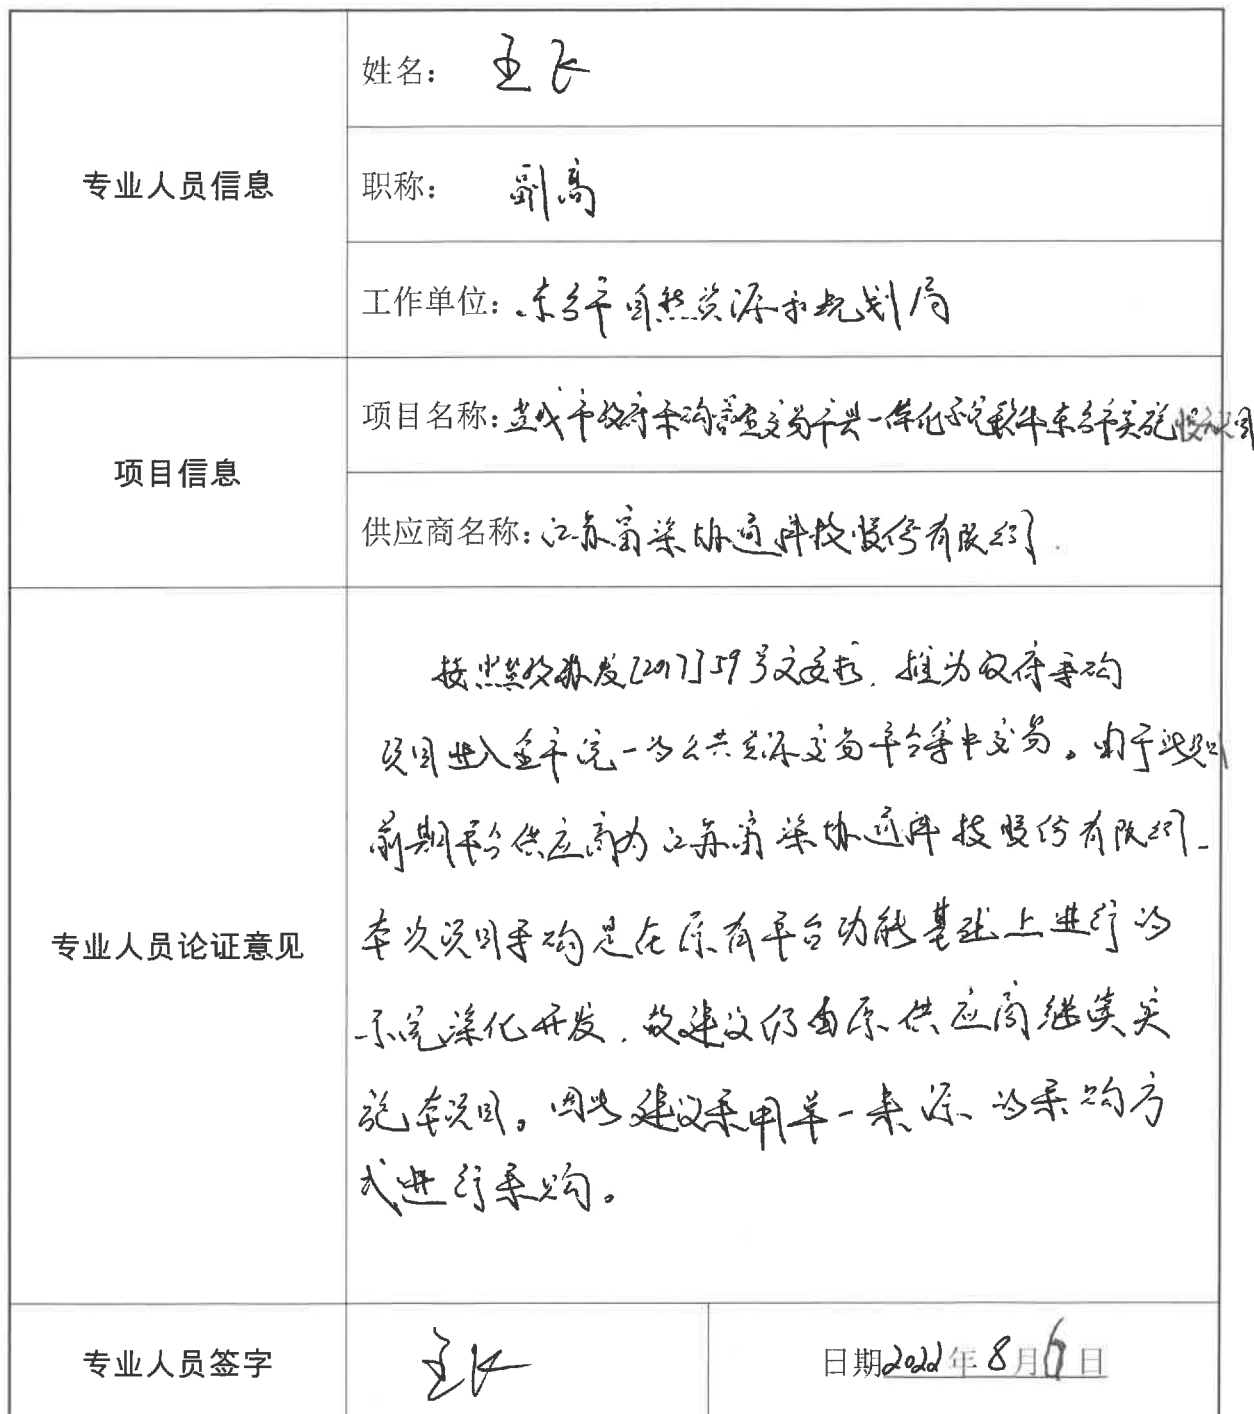 专业人员信息
姓名： 王飞
职称： 副高
工作单位：东台市自然资源和规划局
项目信息
项目名称：盐城市政府采购 交易市县一体化系统软件东台市实施服务项目
供应商名称：江苏富深协通科技股份有限公司
专业人员论证意见
按照 政办发[2017]59号文要求，推为政府采购
项目进入全市统一的公共资源交易平台集中交易。由于该项目
前期平台供应商为江苏富深协通科技股份有限公司
本次项目采购是在原有平台功能基础上进行的
系统深化开发，故建议仍由原供应商继续实
施本项目。因此建议采用单一来源的采购方
式进行采购。
专业人员签字
王飞
日期2022年8月6日